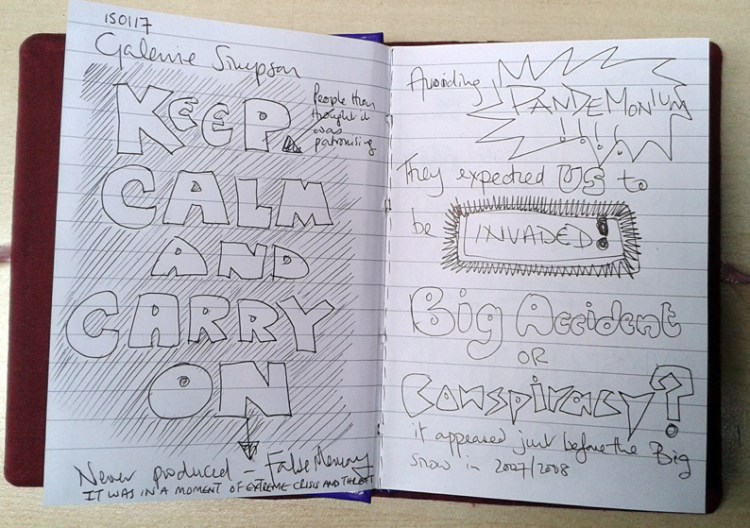 150117
Galerie Simpson
KEEP
People then
thought it
was
patronising
CALM
AND
CARRY
ON
Never produced – False Memory
IT WAS IN A MOMENT OF EXTREME CRISIS AND THREAT
Avoiding PANDEMONIUM
!!!!
They expected US to
be INVADED!
Big Accident
OR
Conspiracy?
it appeared just before the Big
snow in 2007/2008